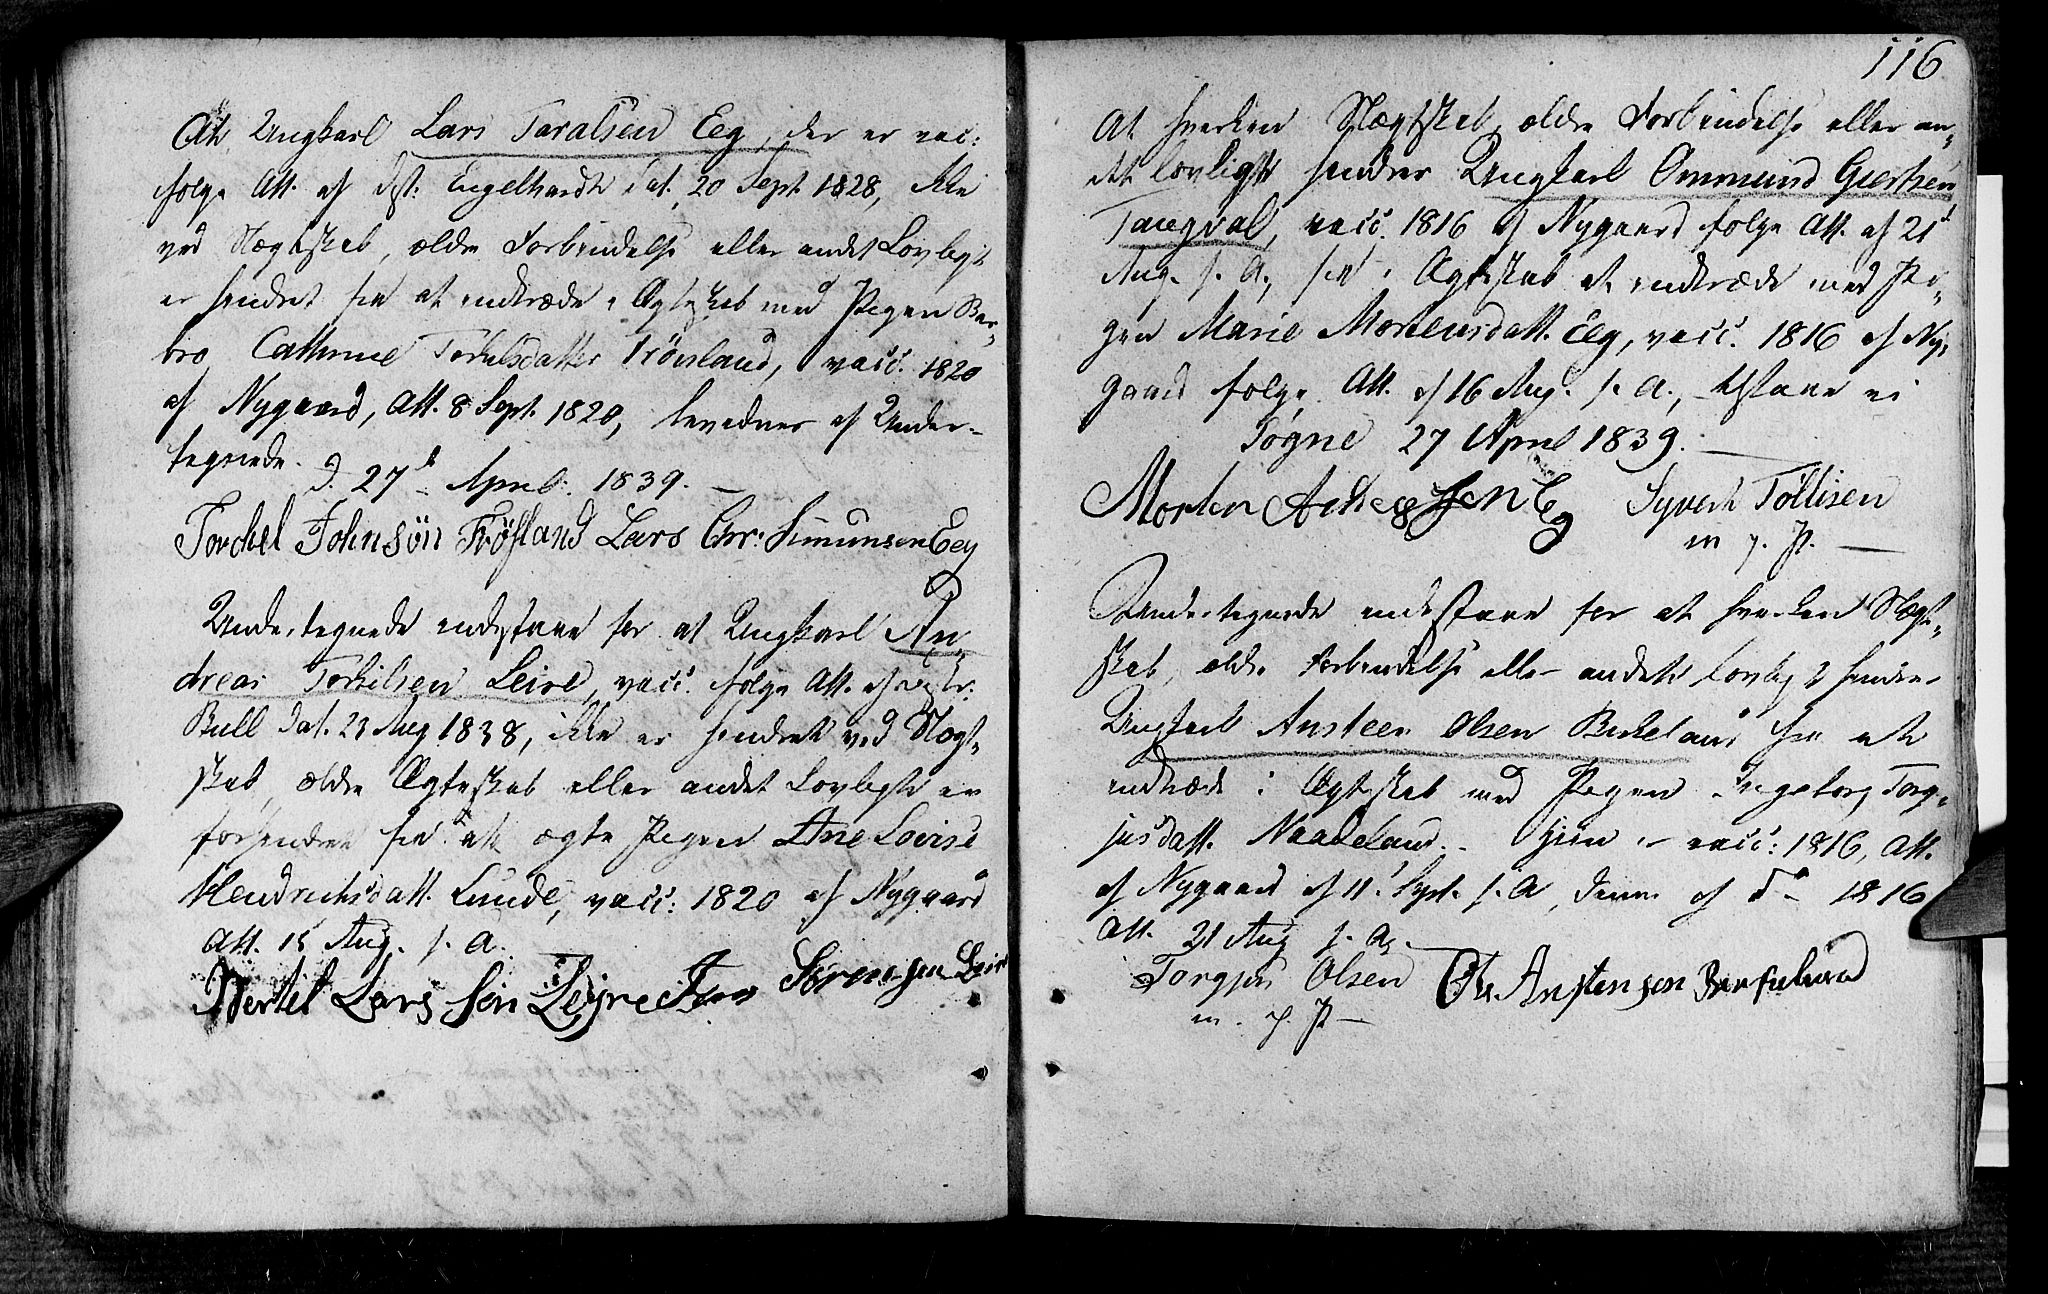 At Ungkarl Lars Taralsen Eeg, der er vac:
følge Att. af Dst. Engelhardt dat. 20 Sept 1828, ikke
ved Slægtskab, ældre Forbindelse eller andet Lovligt
er hindret fra at indtræde i Ægteskab med Pigen Bar-
bro Cathrine Torkilsdatter Frøsland, vacc. 1820
af Nygaard, Att. 8 Sept. 1820, bevidnes af Under-
tegnede. D. 27d April 1839. —
Torchel Johnsøn Frøsland Lars Chr: Simunsen Eeg
Undertegnede indestaae for at Ungkarl An-
dreas Torkilsen Leire, vacc. følge Att. af
Bull dat. 23 Aug 1838, ikke er hindret ved Slægt-
skab, ældre Ægteskab eller andet Lovligt er
forhindret fra at ægte Pigen Ane Lovise
Hendrichsdatt. Lunde, vacc: 1820 af Nygaard
Att. 15 Aug. s. A.
Bertil Lars Søn Leire Sørensen Leire
116
At hverken Slægtskab, ældre Forbindelse eller an-
det lovligt hindrer Ungkarl Ommund Giertsen
Tangval, vacc. 1816 af Nygaard følge Att. af 21d
Aug. s. A., fra i Ægteskab at indtræde med Pi-
gen Marie Mortensdatt. Eeg, vacc. 1816 af Ny-
gaard følge Att. af 16 Aug. s. A., indstaae vi
Søgne 27 April 1839. —
Morten Eg Syvert Tollisen
m. f. P. —
Undertegnede indestaae for at hverken Slægt-
skab, ældre Forbindelse eller andet lovligt hindrer
Ungkarl Ansteen Olsen Birkeland fra at
indtræde i Ægteskab med Pigen Ingeborg Torg-
jusdatt. Naadeland. Hun er vacc: 1816, Att.
af Nygaard af 11t Sept. s. A, denne af do 1816
Att. 21 Aug s. A. —
Torgjus Olsen Ole Anstensen Birkeland
m. f. P —